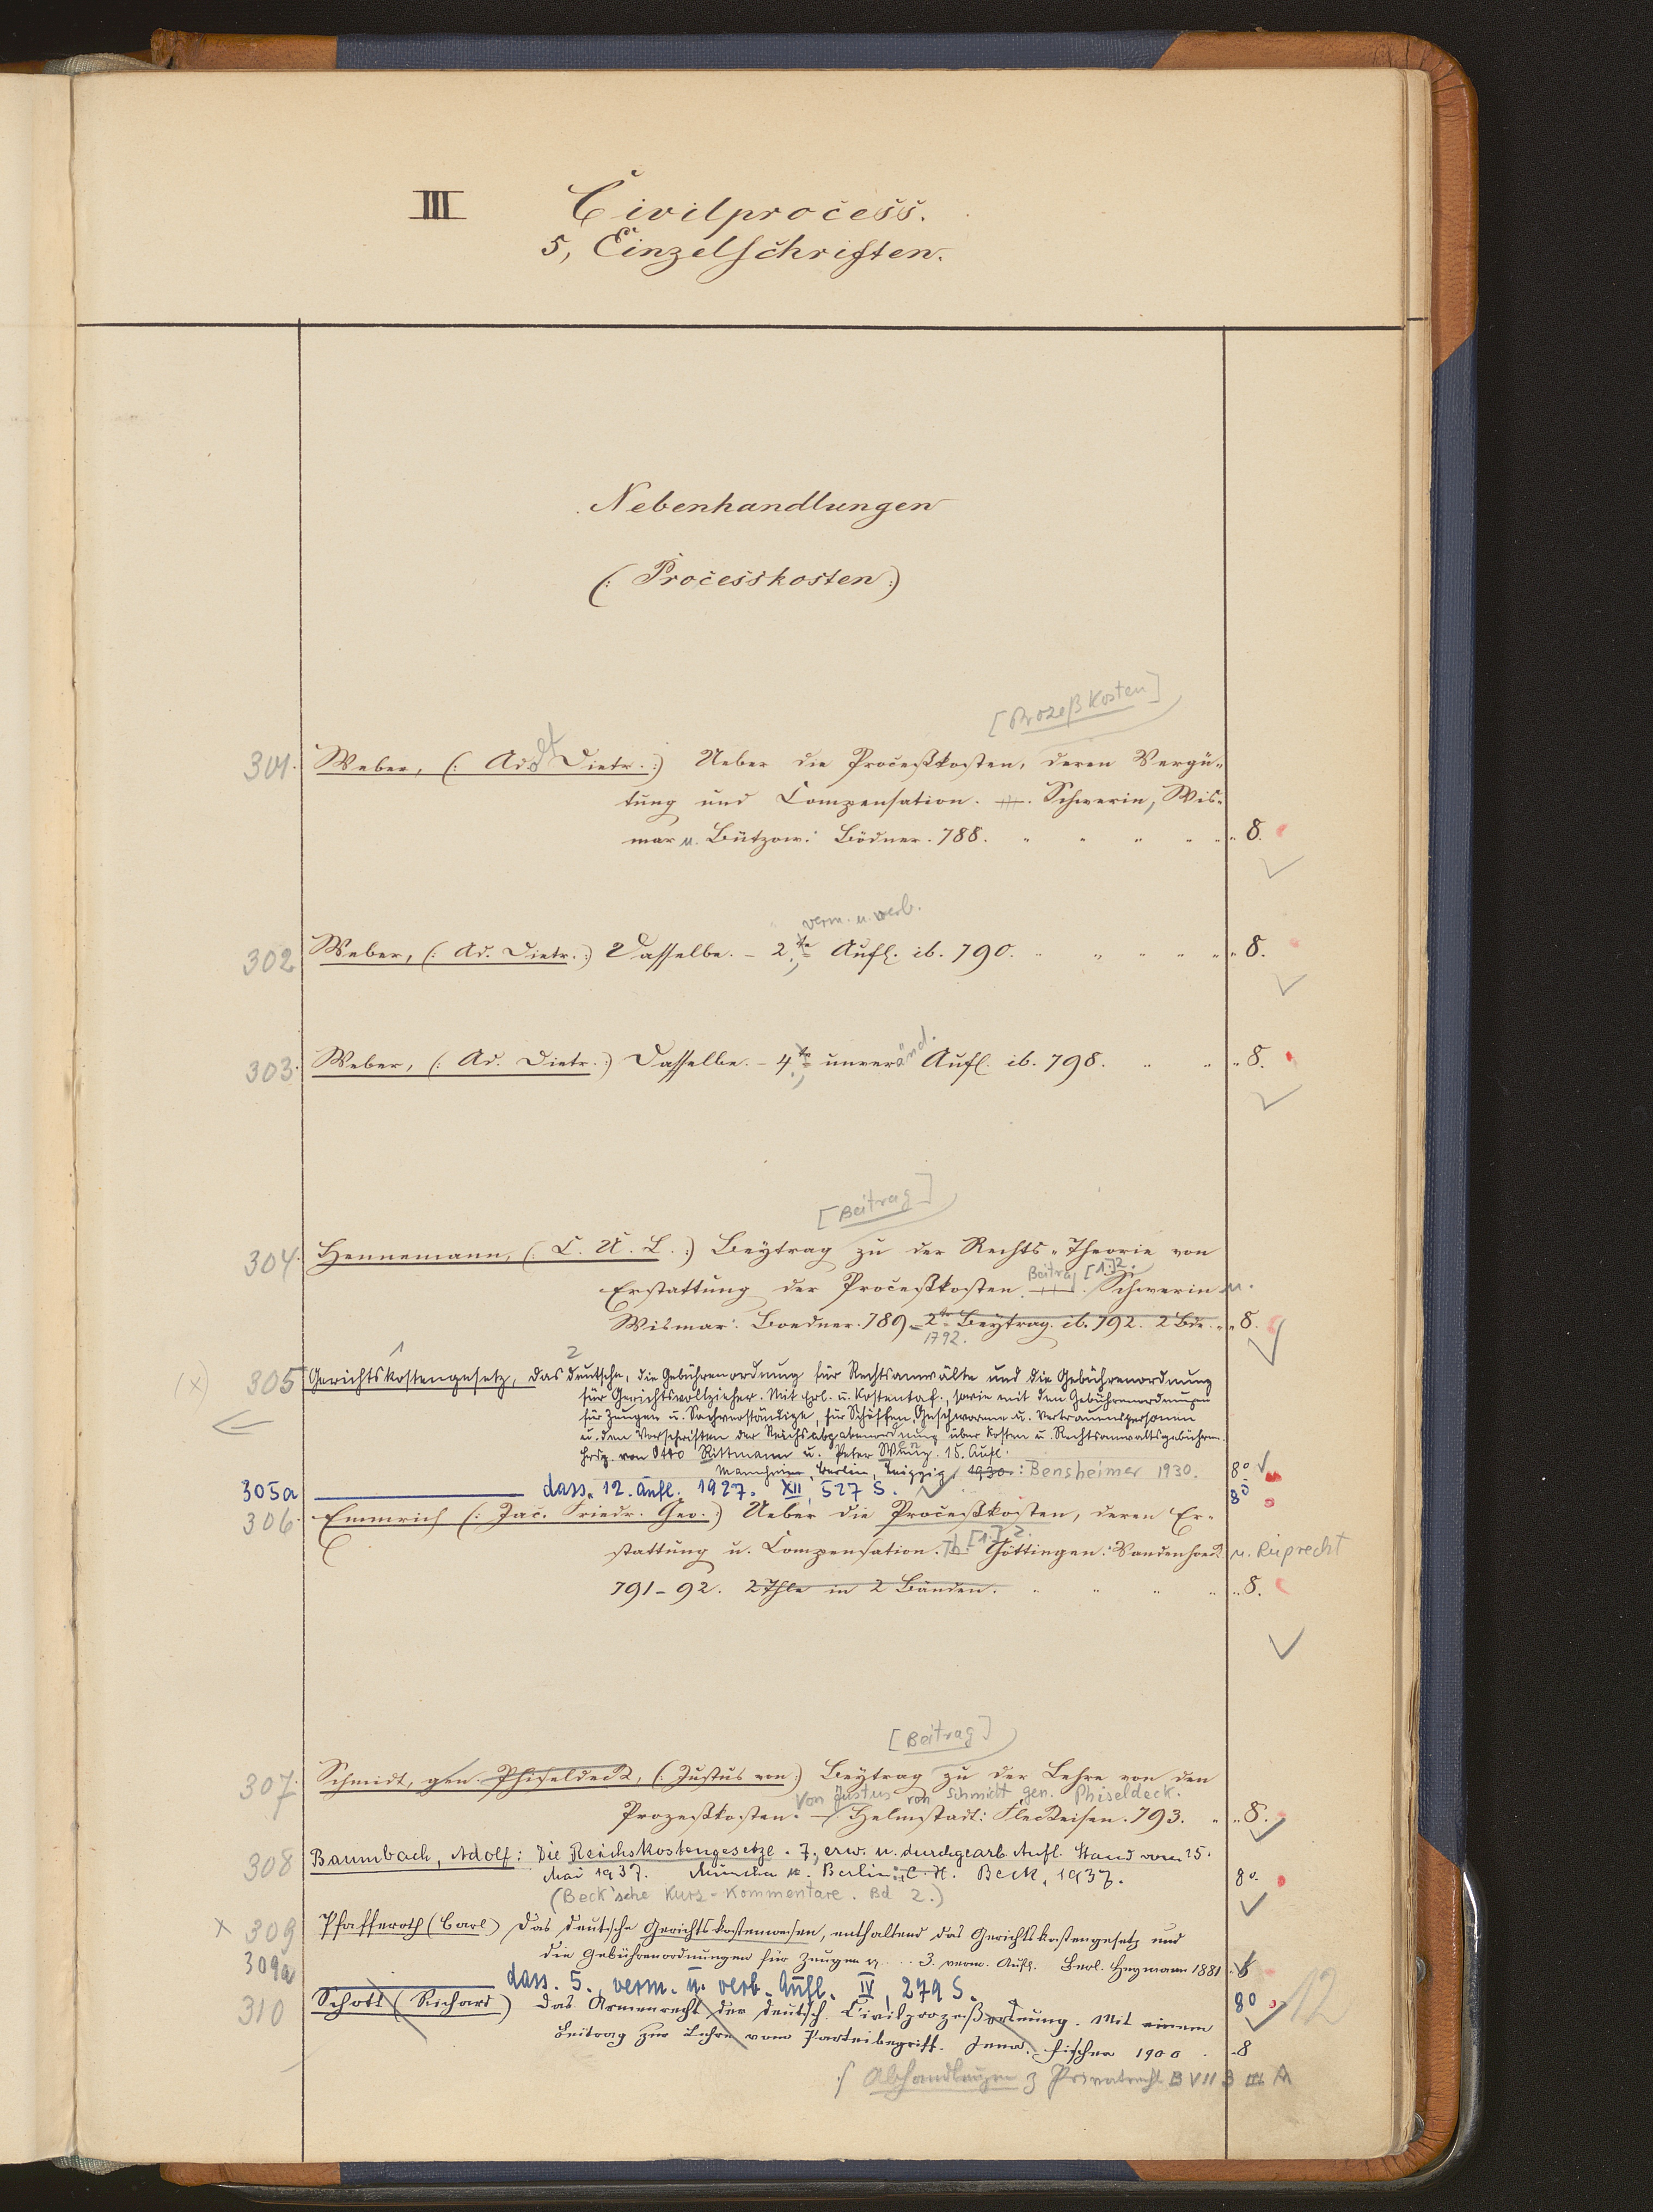 III Civilprocess.
5, Einzelschriften.
Nebenhandlungen
(: Processkosten :)
[Prozeßkosten]
301. Weber, (: Ad. Dietr. :) Ueber die Proceßkosten, deren Vergü-
tung und Compensation. Schwerin, Wis-
mar u. Bützow: Bödner. 788. " " " " " 8.
verm. u. verb.
302 Weber, (: Ad. Dietr. :) Dasselbe. - 2te Aufl. ib. 790. " " " " " 8.
303. Weber, (: Ad. Dietr. :) Dasselbe. - 4te unveränd. Aufl. ib. 798. " " " 8.
[Beitrag]
304. Hennemann, (: C. U. L. :) Beytrag zu der Rechts-Theorie von
Beitrag [1.] 2.
Erstattung der Proceßkosten. Schwerin u.
Wismar: Boedner. 789. - 2te Beytrag. ib. 792. 2 Bde. " 8.
1792.
(x) 305 Gerichtskostengesetz, das deutsche, die Gebührenordnung für Rechtsanwälte und die Gebührenordnung
für Gerichtsvollzieher. Mit Erl. u. Kostentaf., sowie mit den Gebührenordnungen
für Zeugen u. Sachverständige, für Schöffen, Geschworene u. Vertrauenspersonen
u. den Vorschriften der Reichsabgabenordnung über Kosten u. Rechtsanwaltsgebühren.
Hrsg. von Otto Rittmann u. Peter Wenz. 15. Aufl.
Mannheim, Berlin, Leipzig 1930: Bensheimer 1930. 8°
305a dass. 12. Aufl. 1927. XII, 527 S. 8°
306. Emmrich (: Jac. Friedr. Geo. :) Ueber die Proceßkosten, deren Er-
stattung u. Compensation. Th. [1.] 2. Göttingen: Vandenhoeck u. Ruprecht
791-92. 2 Thle in 2 Bänden. " " " " 8.
[Beitrag]
307. Schmidt, gen. Phiseldeck, (: Justus von :) Beytrag zu der Lehre von den
Von Justus von Schmidt gen. Phiseldeck.
Prozeßkosten. - Helmstadt: Fleckeisen. 793. " " 8.
308 Baumbach, Adolf: Die Reichskostengesetze. 7., erw. u. durchgearb. Aufl. Stand vom 15.
Mai 1937. München u. Berlin: C. H. Beck, 1937. 8°.
(Beck'sche Kurz-Kommentare. Bd 2.)
x 309 Pfafferoth (Carl) Das deutsche Gerichtskostenwesen, enthaltend das Gerichtskostengesetz und
die Gebührenordnungen für Zeugen ... 3. verm. Aufl. Berl. Heymann 1881 8
309a dass. 5., verm. u. verb. Aufl. IV, 279 S. 8° 12
310 Schott (Richard) Das Armenrecht der deutsch. Civilprozeßordnung. Mit einem
Beitrag zur Lehre vom Parteibegriff. Jena. Fischer 1900 8
Abhandlungen z Privatrecht B VII 3 III A